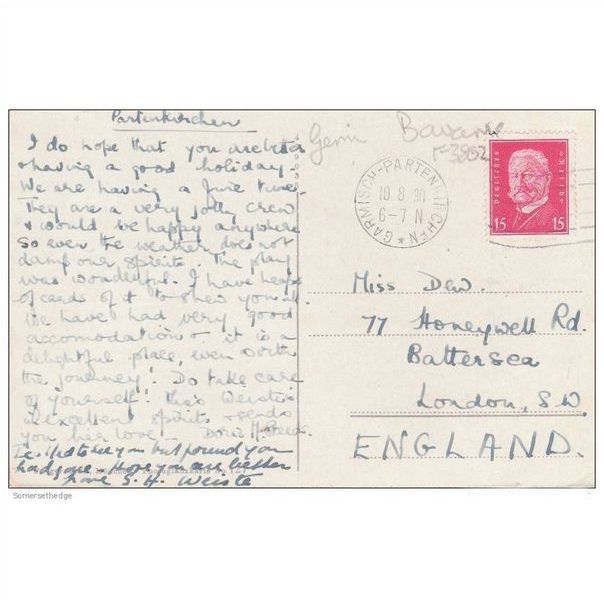 Partenkirchen
I do hope that you are better
& having a good holiday.
We are having a fine time.
They are a very jolly crew
& would be happy anywhere
So even the weather does not
damp our spirits. The play
was wonderful. I have heaps
of cards of it to shew you all.
We have had very good
accomodation & it is a
delightful place, even worth
the journey! Do take care
of yourself! Miss Weiste is
in excellent spirits & sends
you her love! Doris M.
I to see you but found you
had gone. Hope you are better
love S. H. Weiste
Germ Bavaria
F3852
GARMISCH-PARTENKIRCHEN
19.8.30
6-7 N
Deutsches Reich
15 15
Miss Dew.
77 Honeywell Rd.
Battersea
London, S.W.
ENGLAND.
Somersethedge